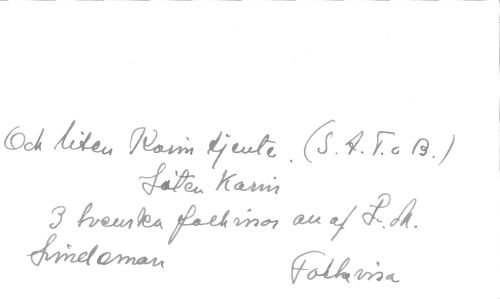 Och liten Karin tjente. (S. A. T. o B.)
Liten Karin
3 Svenska folkvisor av
Lindeman Folkvisa